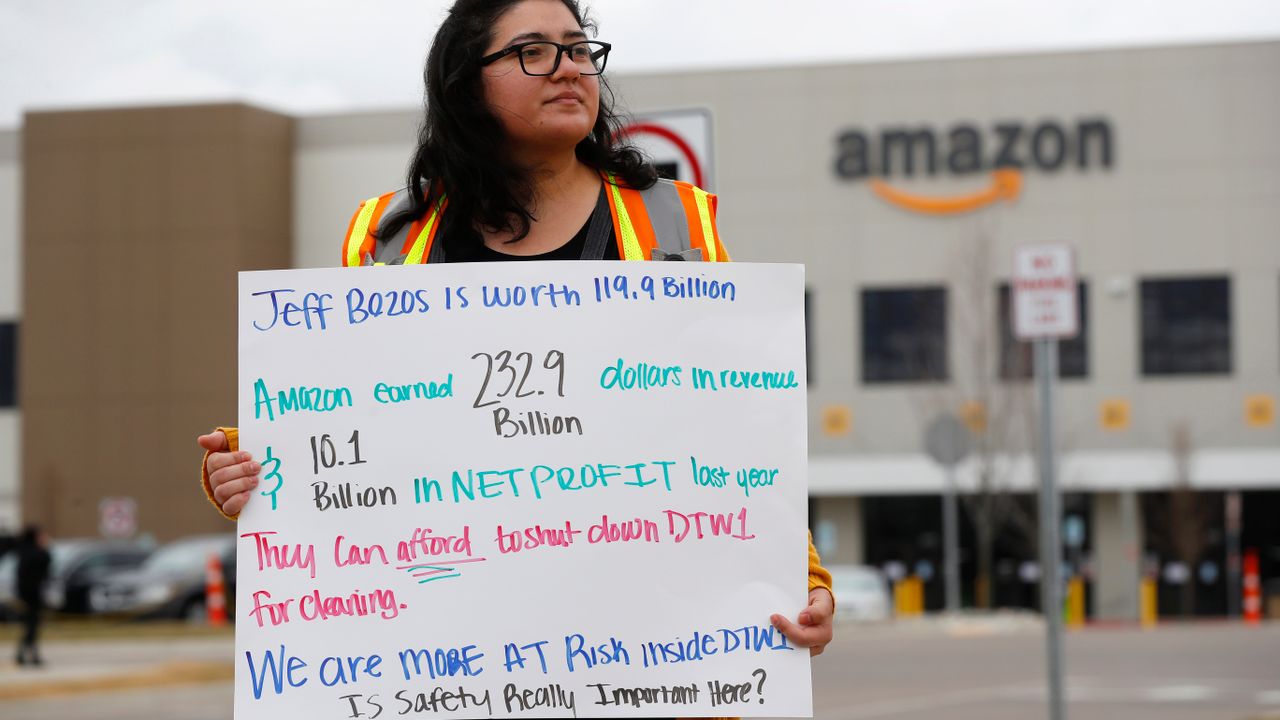 amazon
Jeff Bezos Is worth 119.9 Billion
Amazon earned 232.9 dollars in revenue
Billion
& 10.1
Billion in NET PROFIT last year
They Can afford to shut down DTW1
for cleaning.
We are MORE AT Risk inside DTW1
Is Safety Really Important Here?